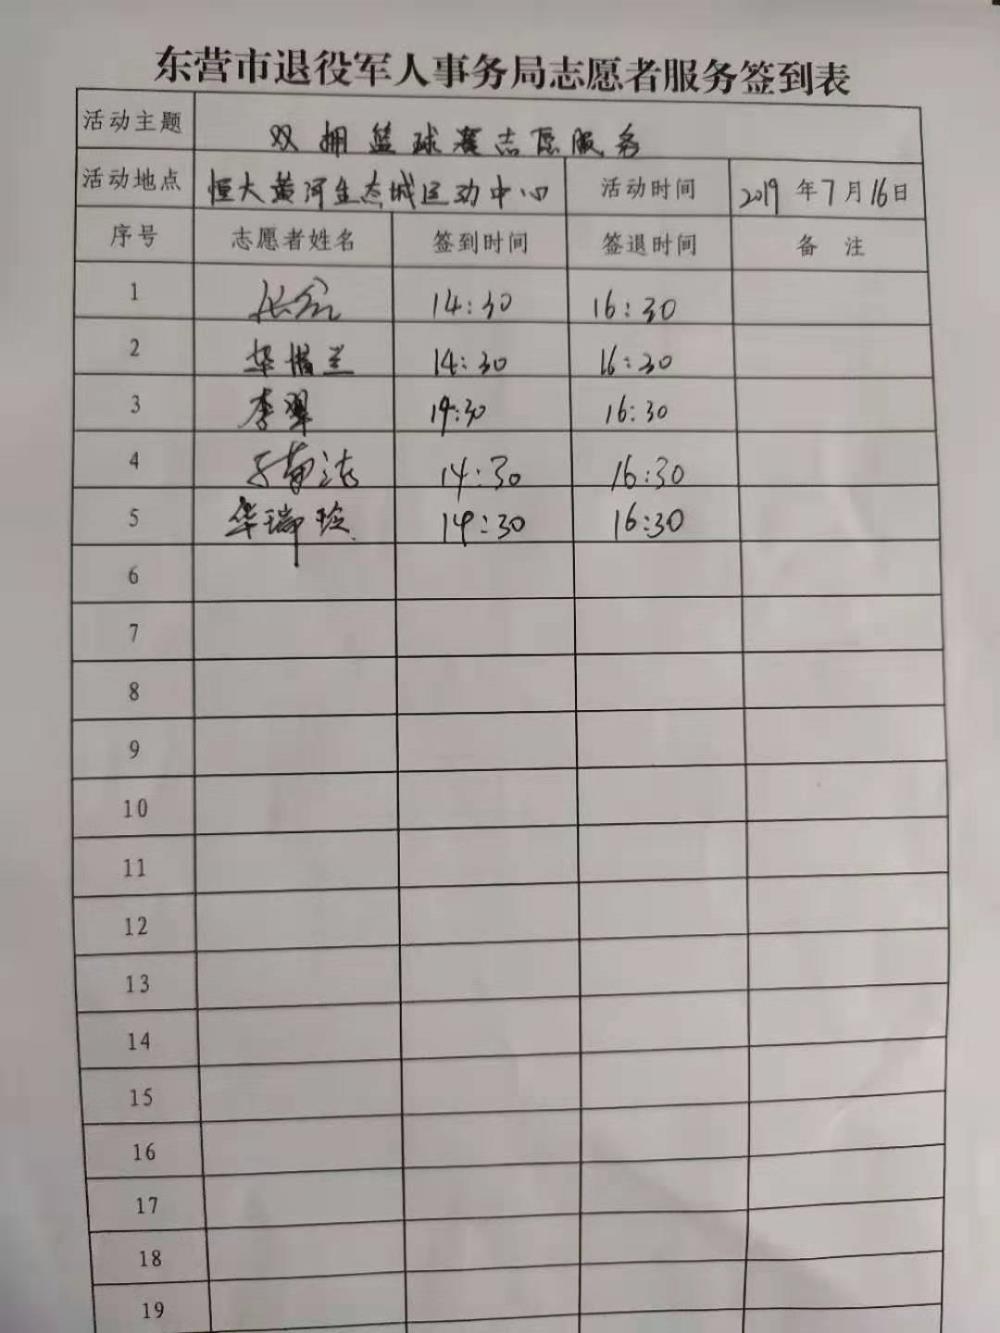 东营市退役军人事务局志愿者服务签到表
活动主题 双拥篮球赛志愿服务
活动地点 恒大黄河生态城运动中心 活动时间 2019年7月16日
序号 志愿者姓名 签到时间 签退时间 备注
1 14:30 16:30
2 华 兰 14:30 16:30
3 李翠 14:30 16:30
4 14:30 16:30
5 华瑞玲 14:30 16:30
6
7
8
9
10
11
12
13
14
15
16
17
18
19